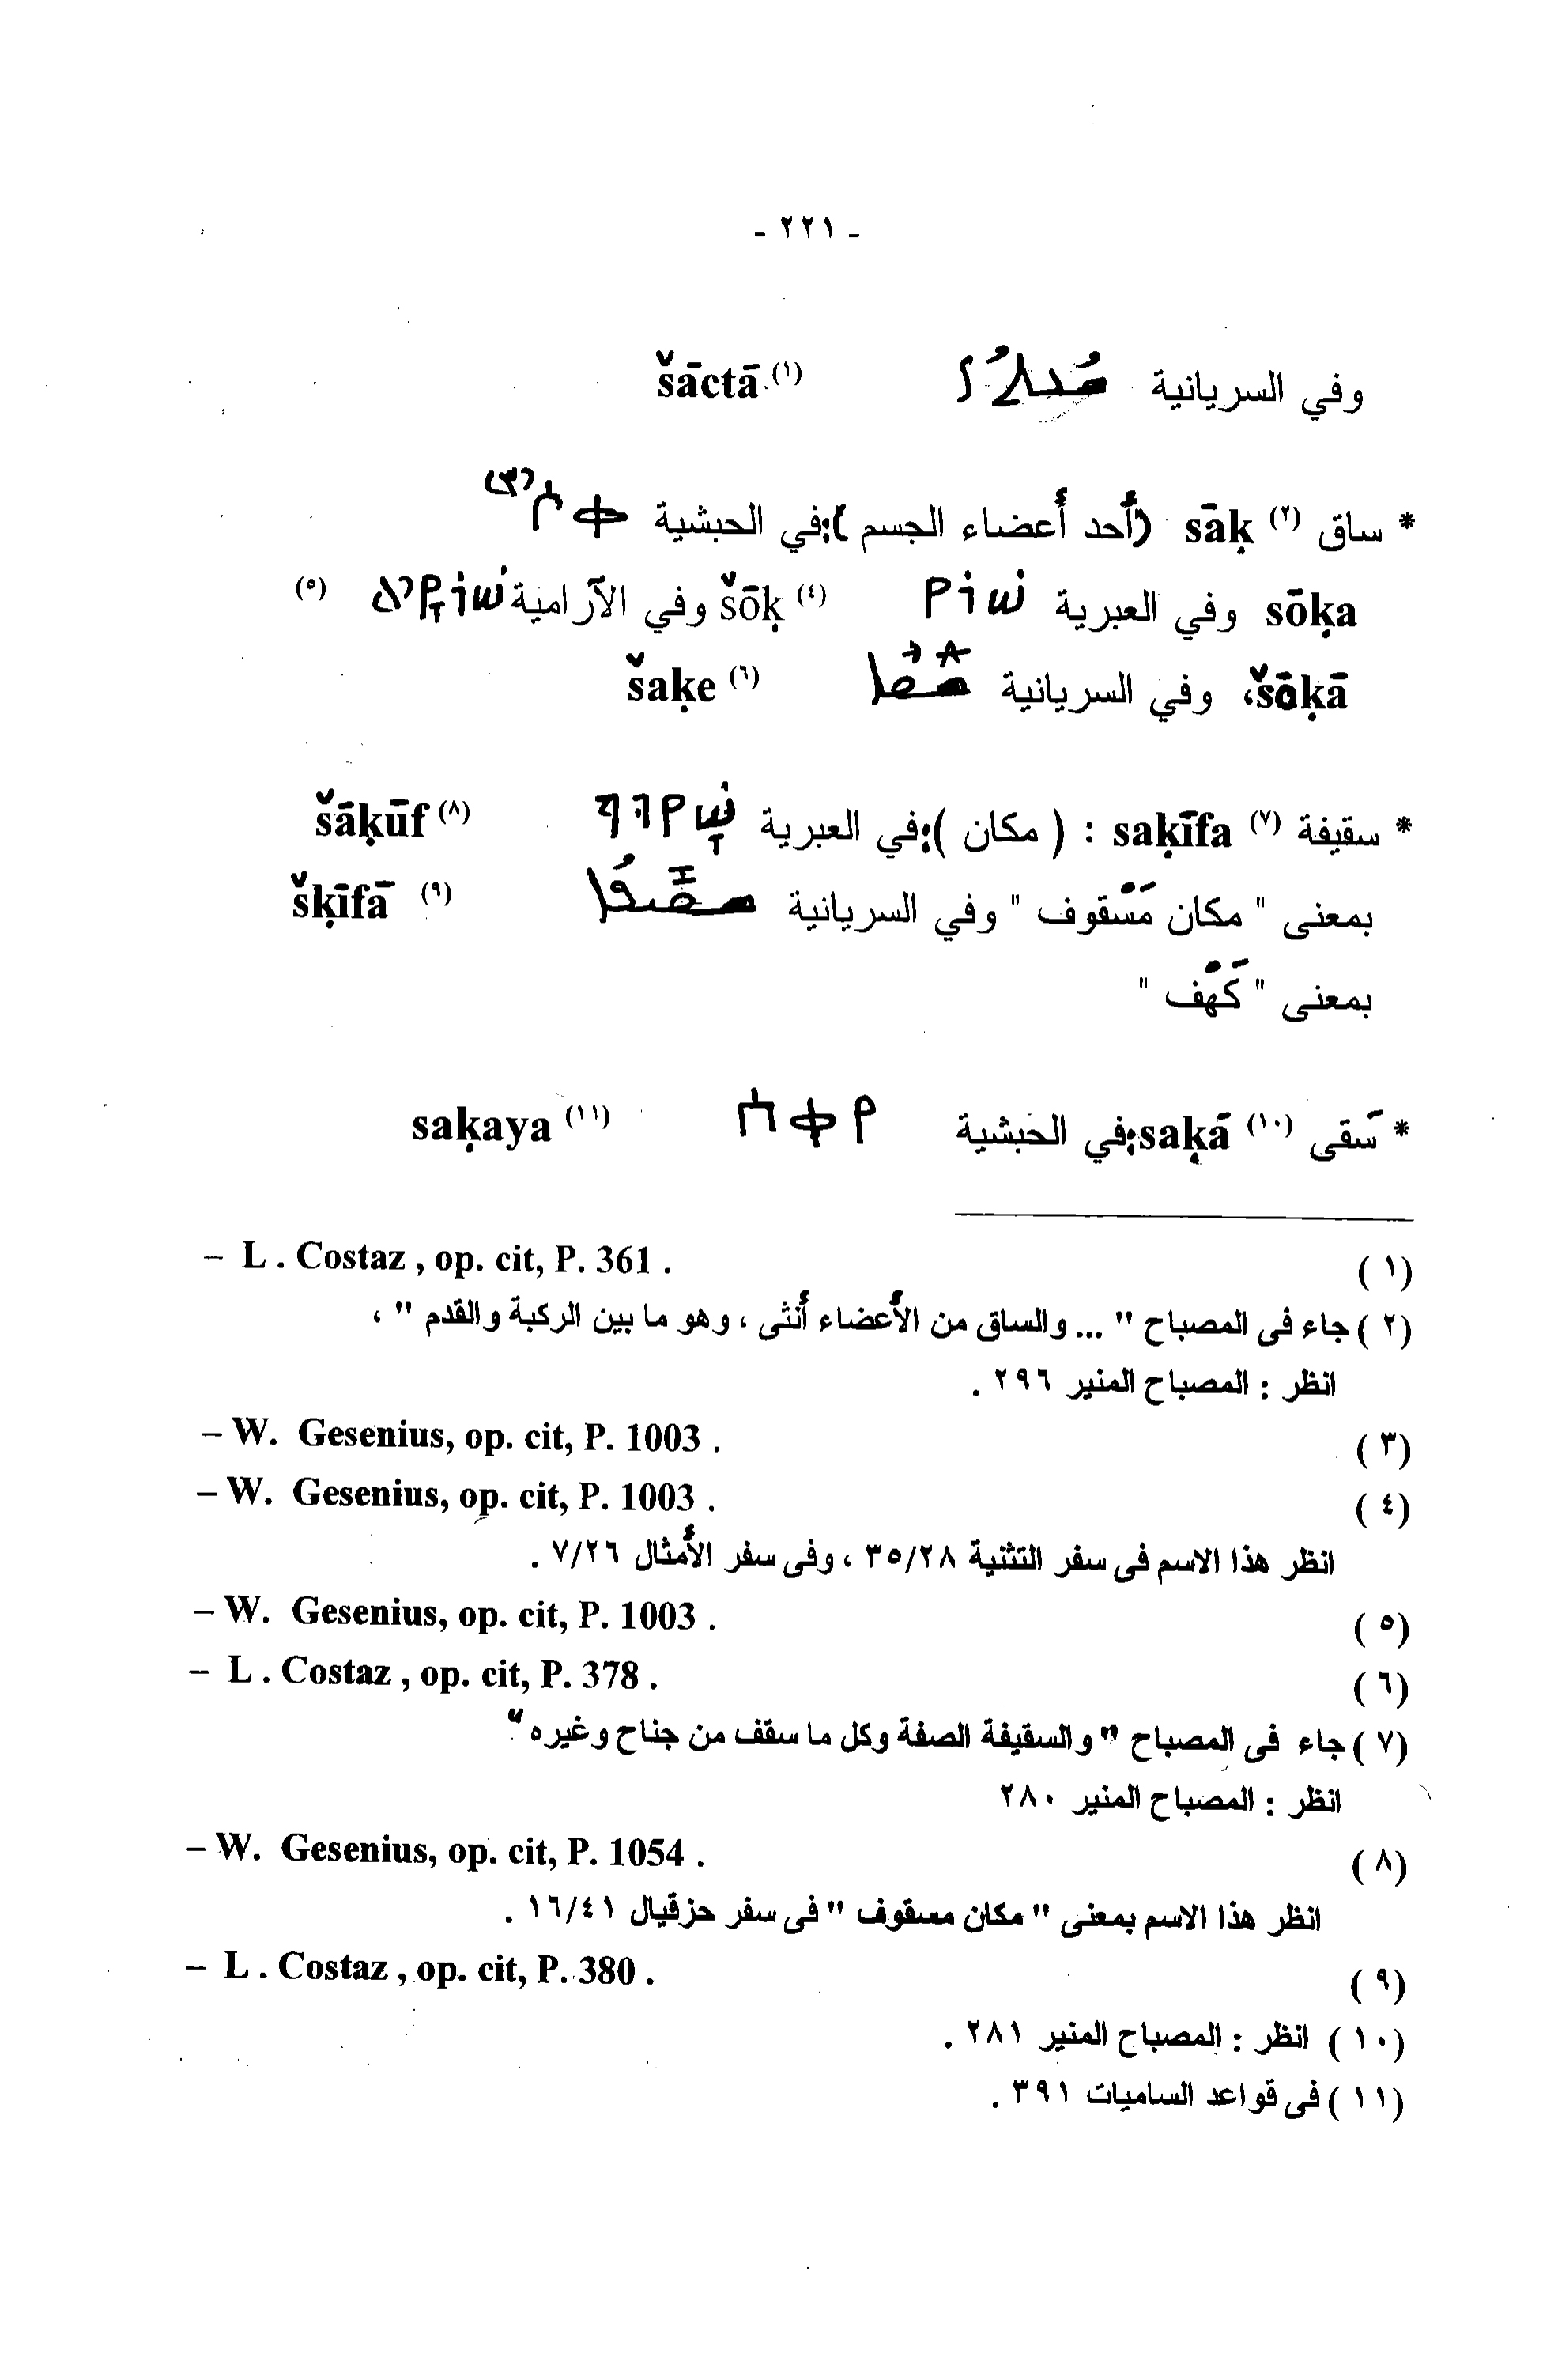 - ٢٢١ -
وفي السريانية ܫܳܥܬܳܐ šāctā (١)
* ساق (٢) sāḳ (أحد أعضاء الجسم): في الحبشية ሰቀ (٣)
sōḳa وفي العبرية שׁוֹק šōḳ (٤) وفي الآرامية שׁוֹקָא (٥)
šōḳā، وفي السريانية ܫܩܐ šaḳe (٦)
* سقيفة (٧) saḳīfa : ( مكان ): في العبرية שָׁקוּף šāḳūf (٨)
بمعنى " مكان مَسْقوف " وفي السريانية ܫܩܝܦܐ šḳīfā (٩)
بمعنى " كَهْف "
* سَقى (١٠) saḳā: في الحبشية ሰቀየ saḳaya (١١)
(١) – L . Costaz , op. cit, P. 361 .
(٢) جاء فى المصباح " ... والساق من الأعضاء أنثى ، وهو ما بين الركبة والقدم " ،
انظر : المصباح المنير ٢٩٦ .
(٣) – W. Gesenius, op. cit, P. 1003 .
(٤) – W. Gesenius, op. cit, P. 1003 .
انظر هذا الاسم فى سفر التثنية ٣٥/٢٨ ، وفى سفر الأمثال ٧/٢٦ .
(٥) – W. Gesenius, op. cit, P. 1003 .
(٦) – L . Costaz , op. cit, P. 378 .
(٧) جاء فى المصباح " والسقيفة الصفة وكل ما سقف من جناح وغيره "
انظر : المصباح المنير ٢٨٠
(٨) – W. Gesenius, op. cit, P. 1054 .
انظر هذا الاسم بمعنى " مكان مسقوف " فى سفر حزقيال ١٦/٤١ .
(٩) – L . Costaz , op. cit, P. 380 .
(١٠) انظر : المصباح المنير ٢٨١ .
(١١) فى قواعد الساميات ٣٩١ .